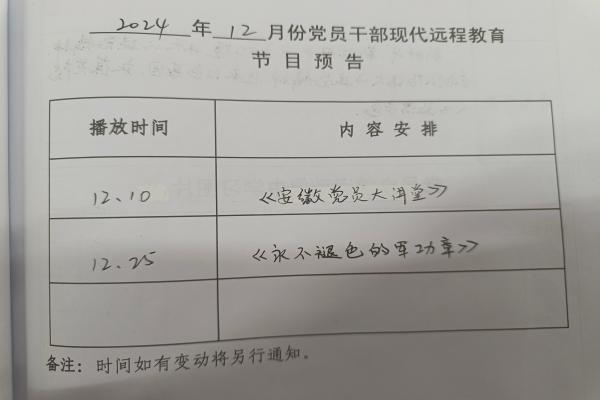 2024 年 12 月份党员干部现代远程教育
节目预告
播放时间 内容安排
12、10 《安徽党员大讲堂》
12、25 《永不褪色的军功章》
备注：时间如有变动将另行通知。